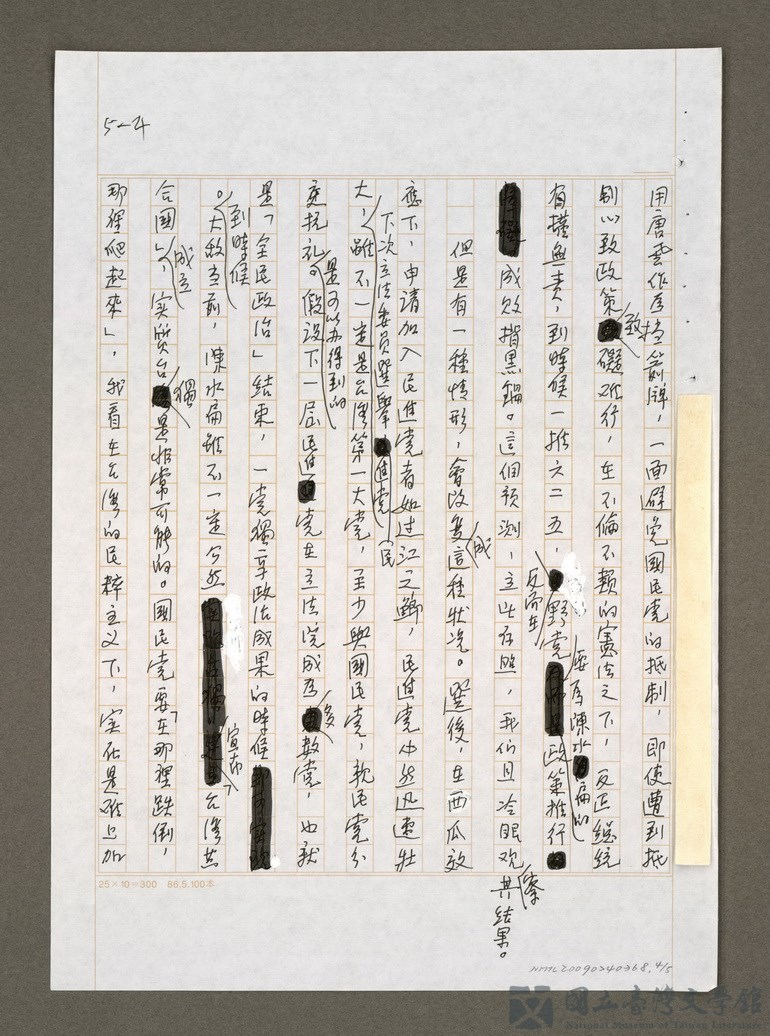 5-4
用唐雲作為擋箭牌，一面避免國民党的抵制，即使遭到抵
制以致政策窒礙难行，在不倫不類的憲法之下，反正總統
有權無責，到時候一推六二五，反而在野党要為陳水扁的政策推行
成敗揹黑鍋。這個預測，立此存照，我们且冷眼观察其结果。
但是有一種情形，會改变成這種狀况。選後，在西瓜效
應下，申請加入民進党者如过江之鯽，民進党必然迅速壯
大，下次立法委員選舉，民進党雖不一定是台灣第一大党，至少與國民党，親民党分
庭抗礼是可以办得到的。假設下一屆民進党在立法院成為多数党，也就
是「全民政治」結束，一党獨享政治成果的時候
到時候。大敵当前，陳水扁雖不一定公然宣布「台灣共
合國」成立，实質台獨是非常可能的。國民党要「在那裡跌倒，
那裡爬起來」，我看在台灣的民粹主义下，实在是难上加
25×10=300 86.5.100本
NMTL20090240368.4/5
國立臺灣文學館
National Museum of Taiwan Literature